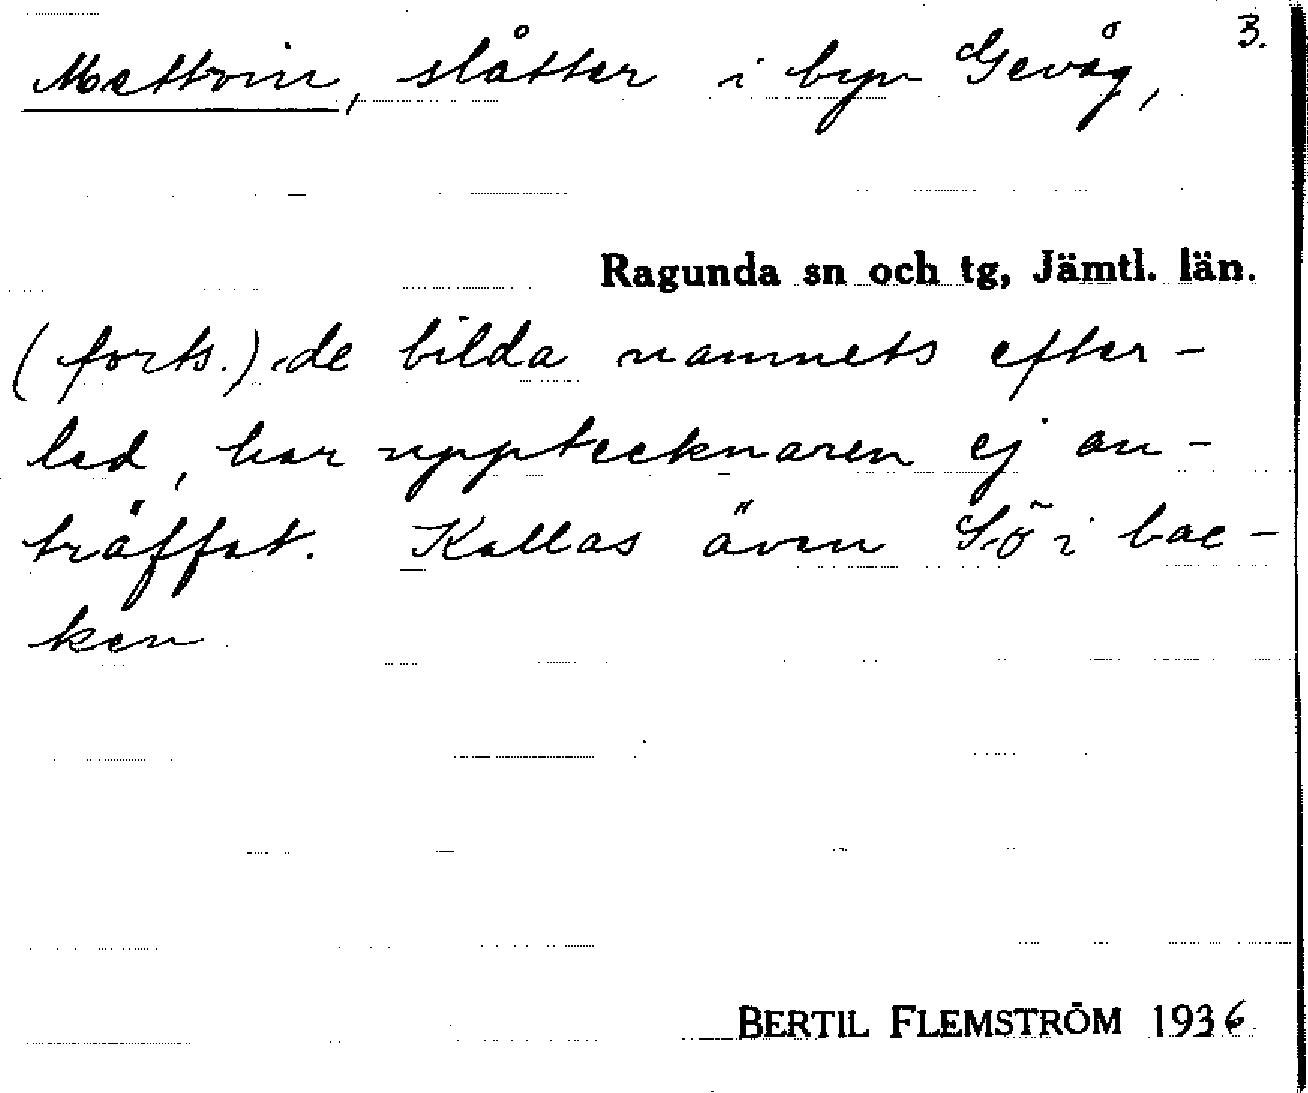 3.
Mettvin, slåtter i byn Gevåg,
Ragunda sn och tg, Jämtl. län.
(forts.) de bilda namnets efter-
led, har upptecknaren ej an-
träffat. Kallas även Sö i bac-
ken
BERTIL FLEMSTRÖM 1936